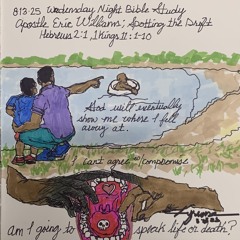 8-13-25 Wednesday Night Bible Study
Apostle Eric Williams; Spotting the Drift
Hebrews 2:1, 1 Kings 11:1-10
God will eventually
show me where I fell
away at.
I can't agree w/ compromise
am I going to speak life or death?